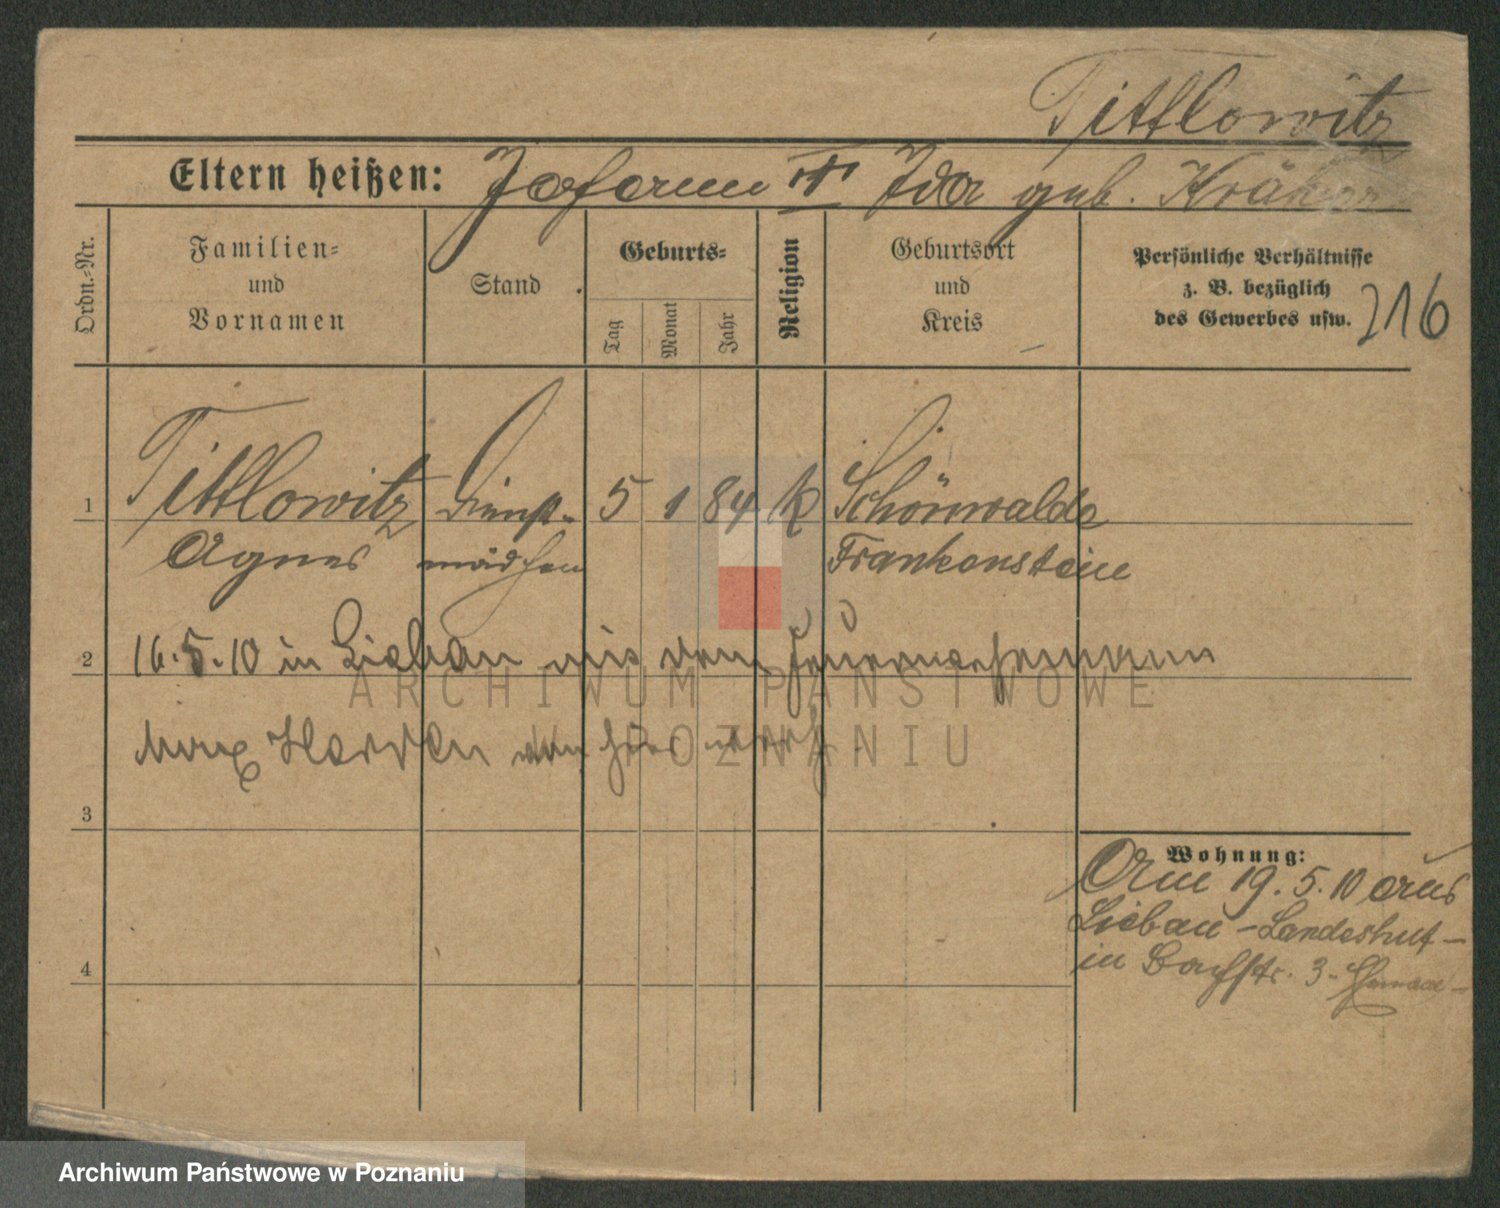 Tittlowitz
Eltern heißen: Johann u. Ida geb. Kräher
Ordn.=Nr.
Familien=
und
Vornamen
Stand
Geburts=
Tag
Monat
Jahr
Religion
Geburtsort
und
Kreis
Persönliche Verhältnisse
z. B. bezüglich
des Gewerbes usw.
216
1 Tittlowitz Dienst- 5 1 84 K Schönwalde
Agnes mädchen Frankenstein
2 16.5.10 in Liebau von
Max von hier
3
4
Wohnung:
Am 19.5.10 aus
Liebau - Landeshut -
in Bachstr. 3 -
ARCHIWUM PAŃSTWOWE
W POZNANIU
Archiwum Państwowe w Poznaniu